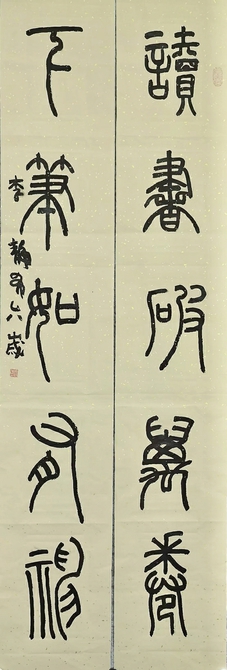 讀書破萬卷
下筆如有神
李靜六歲